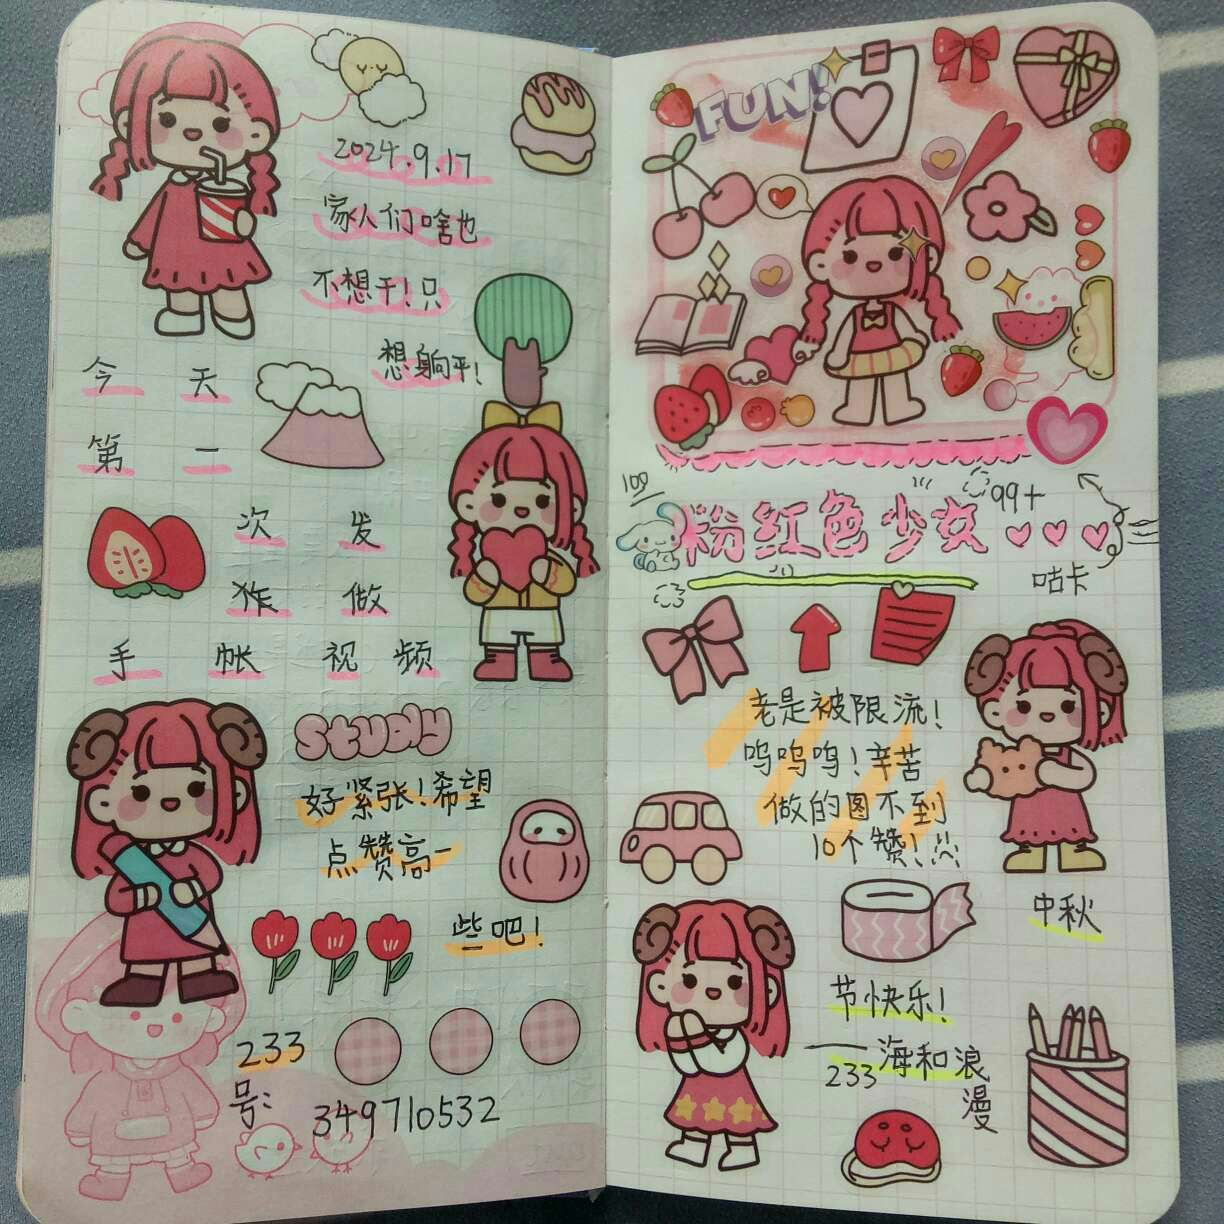 2024.9.17
家人们啥也
不想干!只
想躺平!
今天
第一
次发
做
手帐视频
study
好紧张!希望
点赞高一
些吧!
233
号:
349710532
FUN!
100
粉红色少女
99+
咕卡
老是被限流!
呜呜呜!辛苦
做的图不到
10个赞!
中秋
节快乐!
——海和浪
233
漫